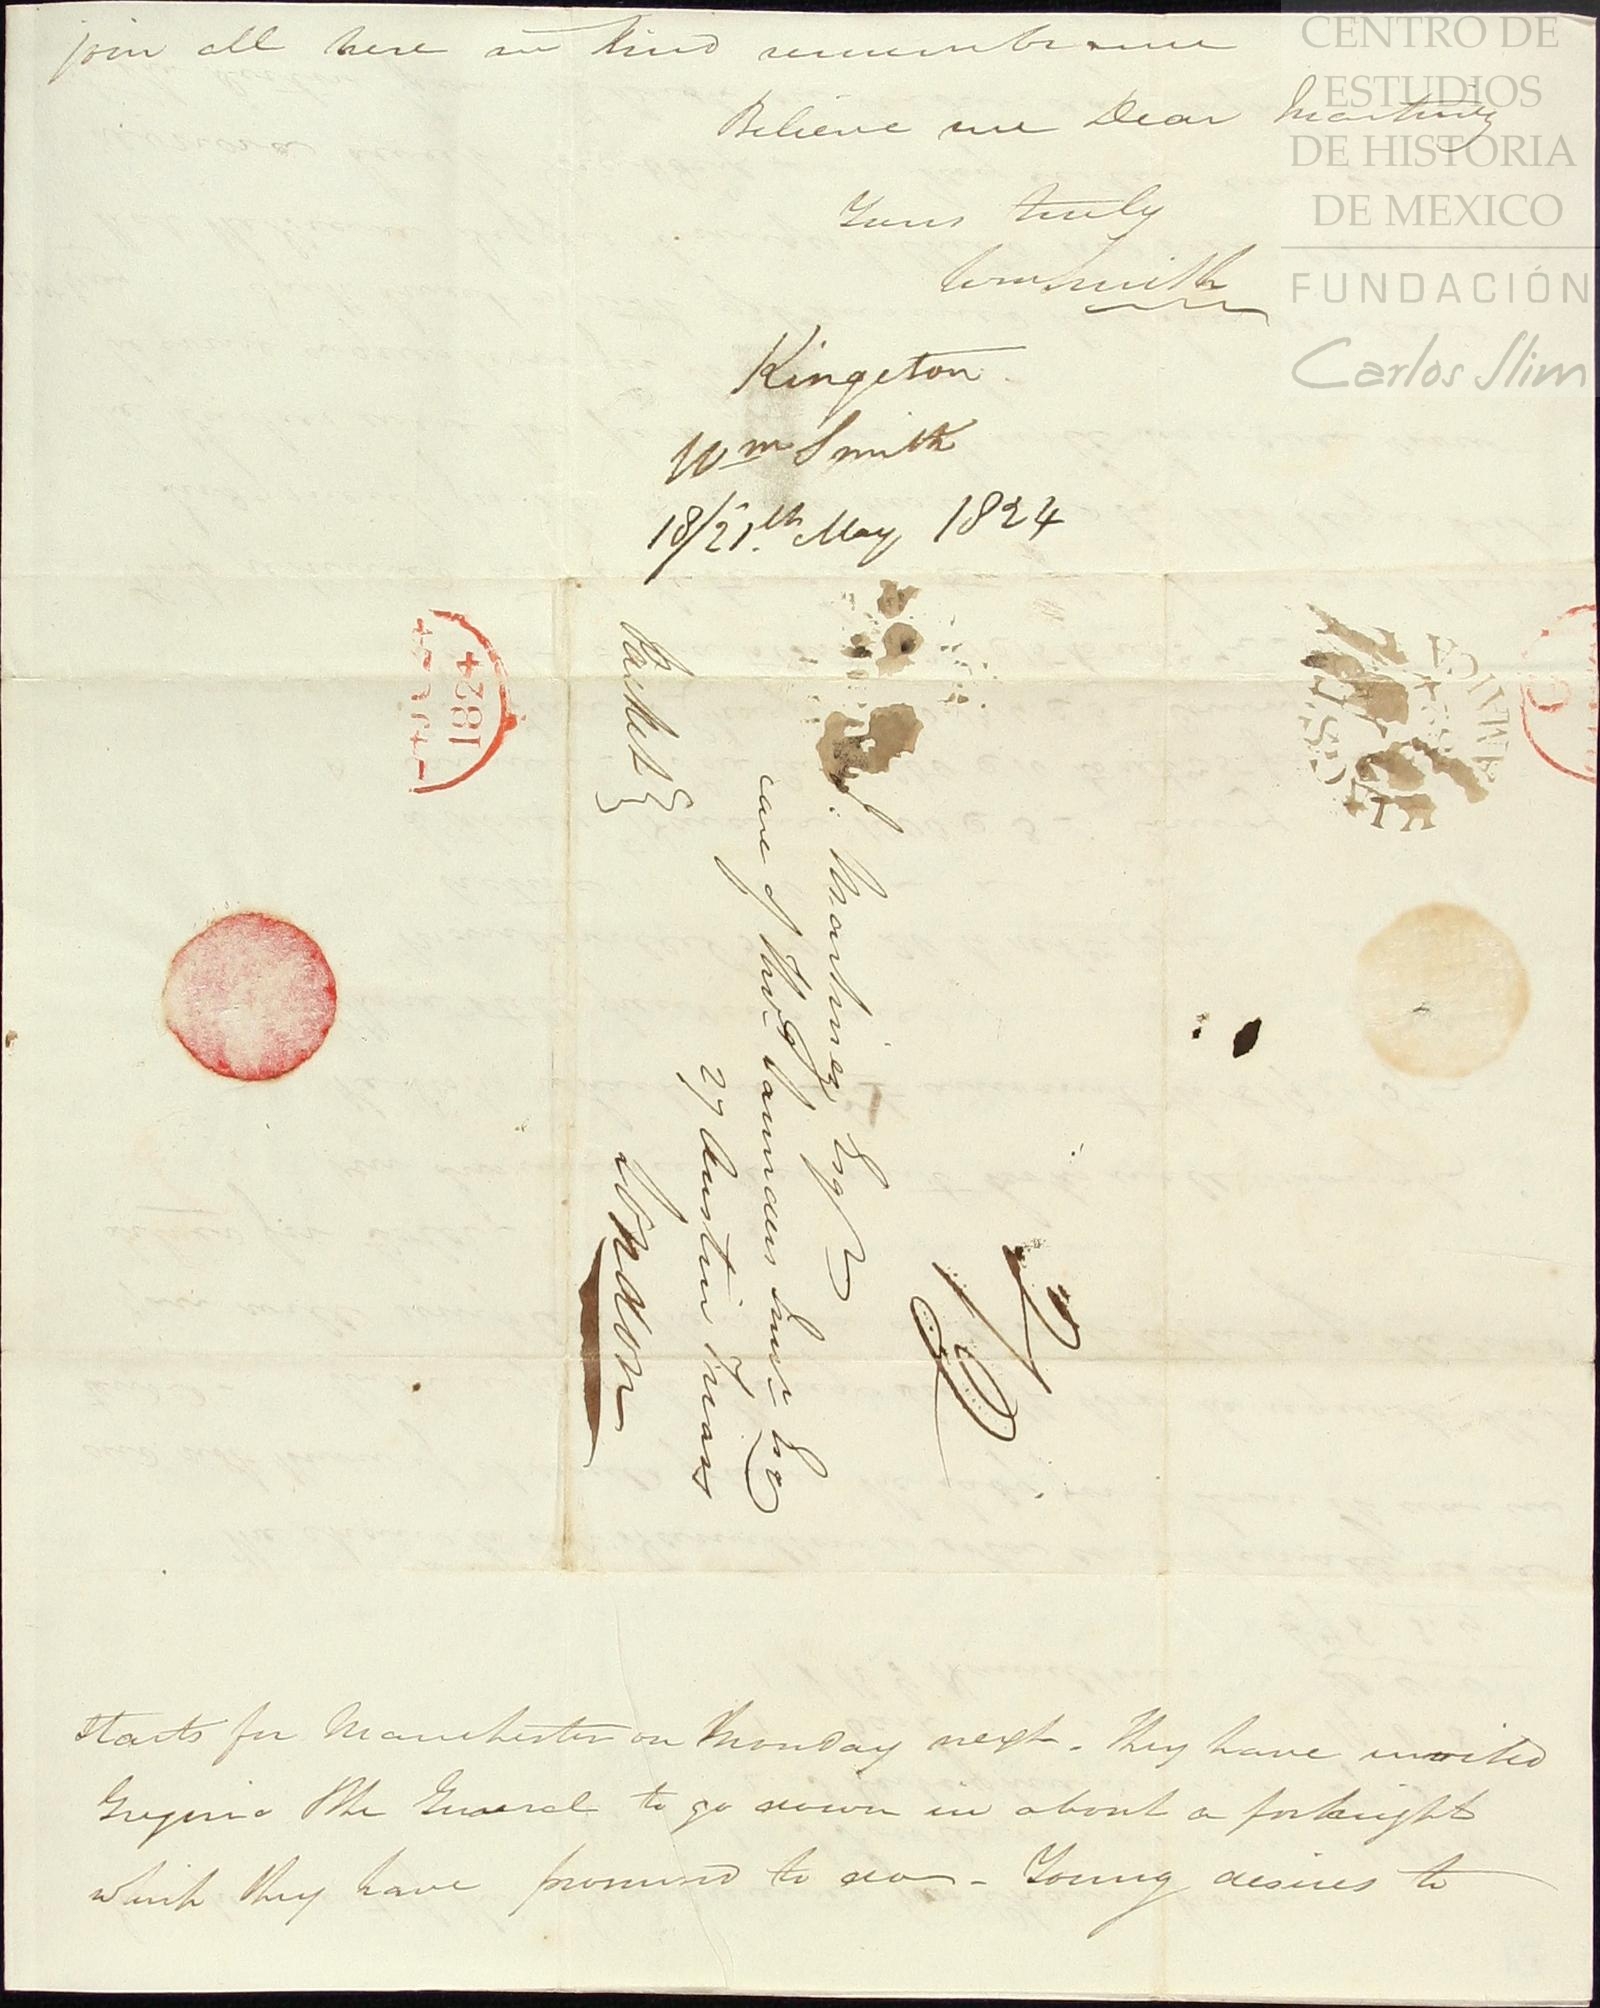 join all here in kind remembrance
Believe me Dear Martinez
Yours truly
Wm Smith
Kingston
Wm Smith
18/21th May 1824
Packet
Martinez Esqr
care of
27 Austin Friars
London
1824
JAMAICA
starts for Manchester on Monday next. They have invited
Gregorio & the General to go down in about a fortnight
which they have promised to do - Young desires to
CENTRO DE
ESTUDIOS
DE HISTORIA
DE MEXICO
FUNDACIÓN
Carlos Slim